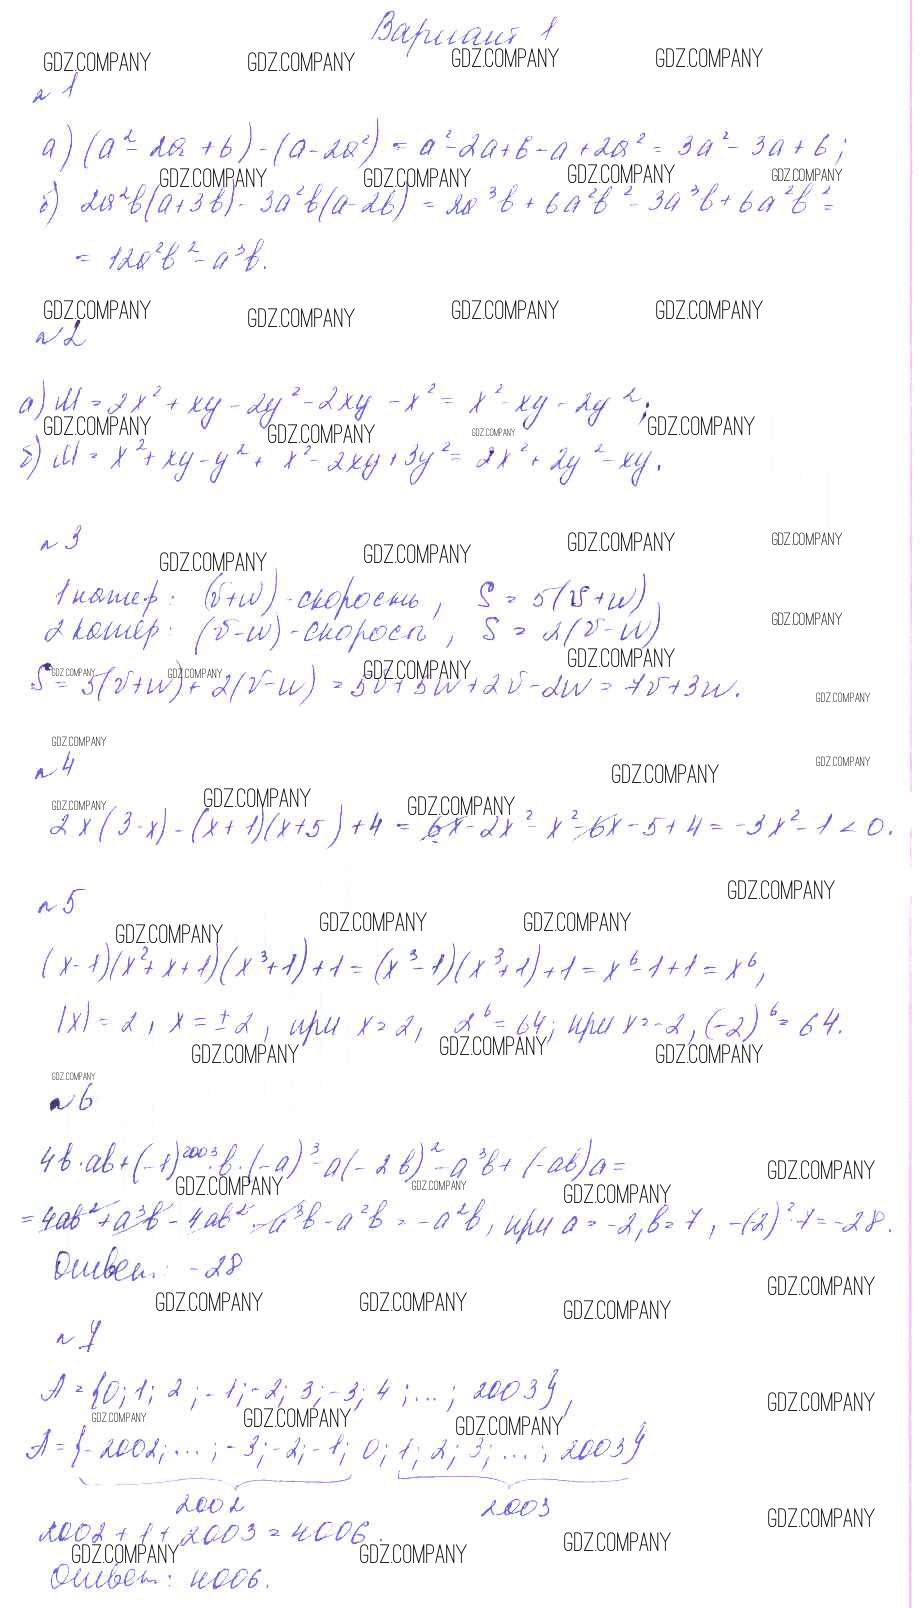 Вариант 1
GDZ.COMPANY GDZ.COMPANY GDZ.COMPANY GDZ.COMPANY
№1
а) (a²-2a+b)-(a-2a²) = a²-2a+b-a+2a² = 3a²-3a+b;
GDZ.COMPANY GDZ.COMPANY GDZ.COMPANY GDZ.COMPANY
б) 2a²b(a+3b)-3a²b(a-2b) = 2a³b+6a²b²-3a³b+6a²b² =
= 12a²b²-a³b.
GDZ.COMPANY GDZ.COMPANY GDZ.COMPANY GDZ.COMPANY
№2
а) M = 2x²+xy-2y²-2xy-x² = x²-xy-2y²;
GDZ.COMPANY GDZ.COMPANY GDZ.COMPANY GDZ.COMPANY
б) M = x²+xy-y²+x²-2xy+3y² = 2x²+2y²-xy.
№3
GDZ.COMPANY GDZ.COMPANY GDZ.COMPANY GDZ.COMPANY
1 катер: (v+w)-скорость, S = 5(v+w)
2 катер: (v-w)-скорость, S = 2(v-w)
GDZ.COMPANY
GDZ.COMPANY GDZ.COMPANY GDZ.COMPANY GDZ.COMPANY
S = 5(v+w)+2(v-w) = 5v+5w+2v-2w = 7v+3w.
GDZ.COMPANY
GDZ.COMPANY
№4
GDZ.COMPANY GDZ.COMPANY
GDZ.COMPANY GDZ.COMPANY GDZ.COMPANY
2x(3-x)-(x+1)(x+5)+4 = 6x-2x²-x²-6x-5+4 = -3x²-1<0.
№5
GDZ.COMPANY
GDZ.COMPANY GDZ.COMPANY GDZ.COMPANY
(x-1)(x²+x+1)(x³+1)+1 = (x³-1)(x³+1)+1 = x⁶-1+1 = x⁶,
|x| = 2, x = ±2, при x=2, 2⁶=64; при x=-2, (-2)⁶=64.
GDZ.COMPANY GDZ.COMPANY GDZ.COMPANY
GDZ.COMPANY
№6
4b·ab+(-1)²⁰⁰³·b·(-a)³-a(-2b)²-a³b+(-ab)a =
GDZ.COMPANY GDZ.COMPANY GDZ.COMPANY GDZ.COMPANY
= 4ab²+a³b-4ab²-a³b-a²b = -a²b, при a=-2, b=7, -(-2)²·7=-28.
Ответ: -28
GDZ.COMPANY GDZ.COMPANY GDZ.COMPANY GDZ.COMPANY
№7
A = {0; 1; 2; -1; -2; 3; -3; 4; ...; 2003},
GDZ.COMPANY GDZ.COMPANY GDZ.COMPANY GDZ.COMPANY
A = {-2002; ...; -3; -2; -1; 0; 1; 2; 3; ...; 2003}
2002 2003
2002+1+2003=4006.
GDZ.COMPANY GDZ.COMPANY GDZ.COMPANY GDZ.COMPANY
Ответ: 4006.